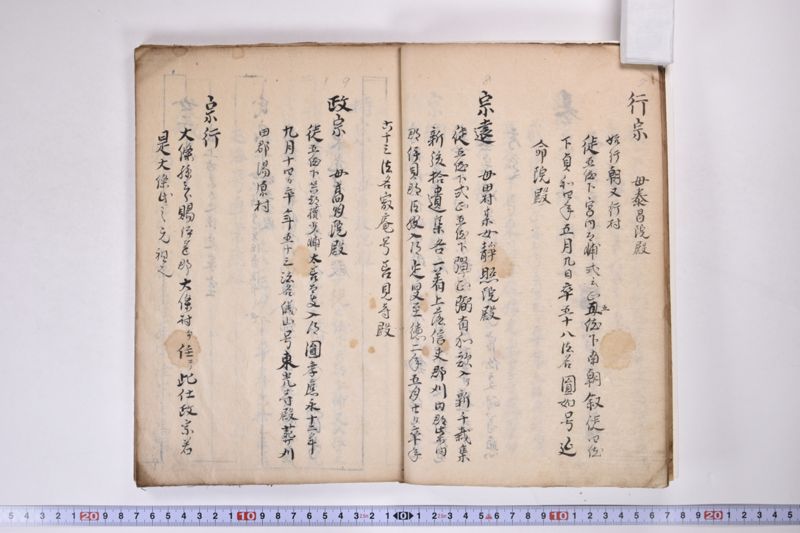 行宗　母泰昌院殿
始行朝又行村
従五位下宮内少輔式正五位下南朝叙従四位
下貞和四年五月九日卒五十八法名圓如号
命院殿
宗遠　母田村某女静照院殿
従五位下式正五位下弾正弼有和歌入新千載集
新後拾遺集各一首上落信夫郡刈田郡柴田
郡伊具郡至徳二年五月廿日卒年
六十三法名家庵号喜見寺殿
政宗　母高明院殿
従五位下大膳大夫入道圓孝應永十二年
九月十四日卒年五十三法名儀山号東光寺殿葬刈
田郡湯原村
宗行
大條孫三郎賜伊達郡大條村ヲ住ス此仕政宗君
是大條氏之元祖也
5 4 3 2 1 20 9 8 7 6 5 4 3 2 1 10 9 8 7 6 5 4 3 2 1 0 1 2 3 4 5 6 7 8 9 10 1 2 3 4 5 6 7 8 9 20 1 2 3 4 5